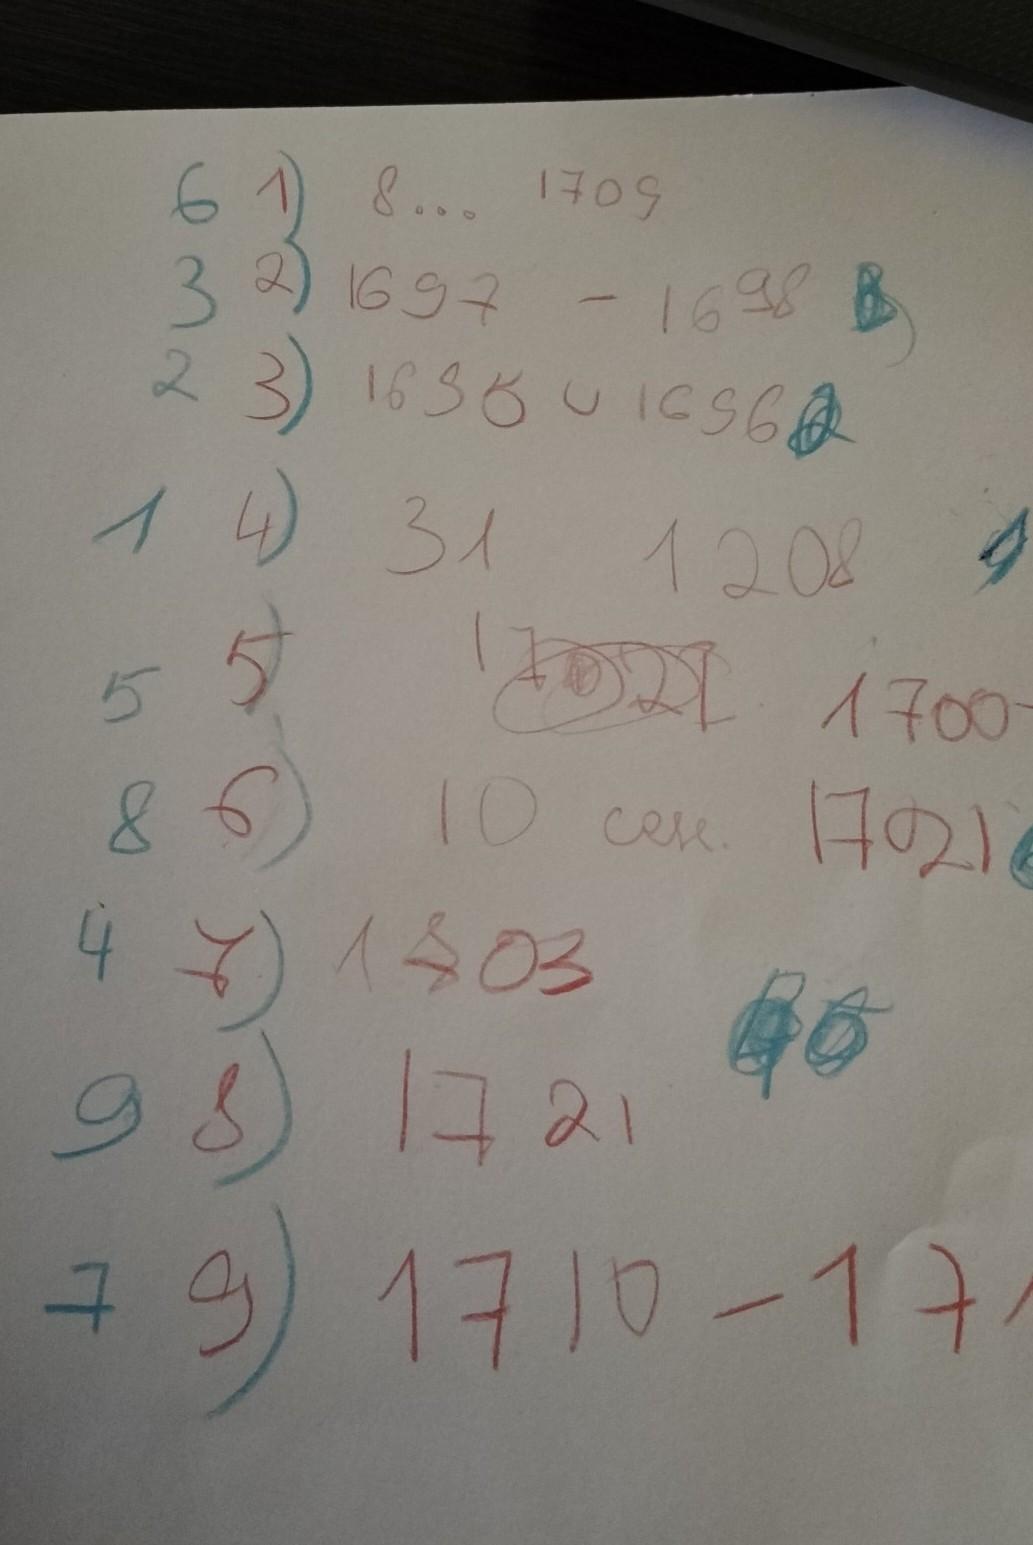 6 1) 8... 1709
3 2) 1697 - 1698
2 3) 1695 и 1696
1 4) 31 1208
5 5) 1700-
8 6) 10 сен. 1721
4 7) 1703
9 8) 1721
7 9) 1710-171